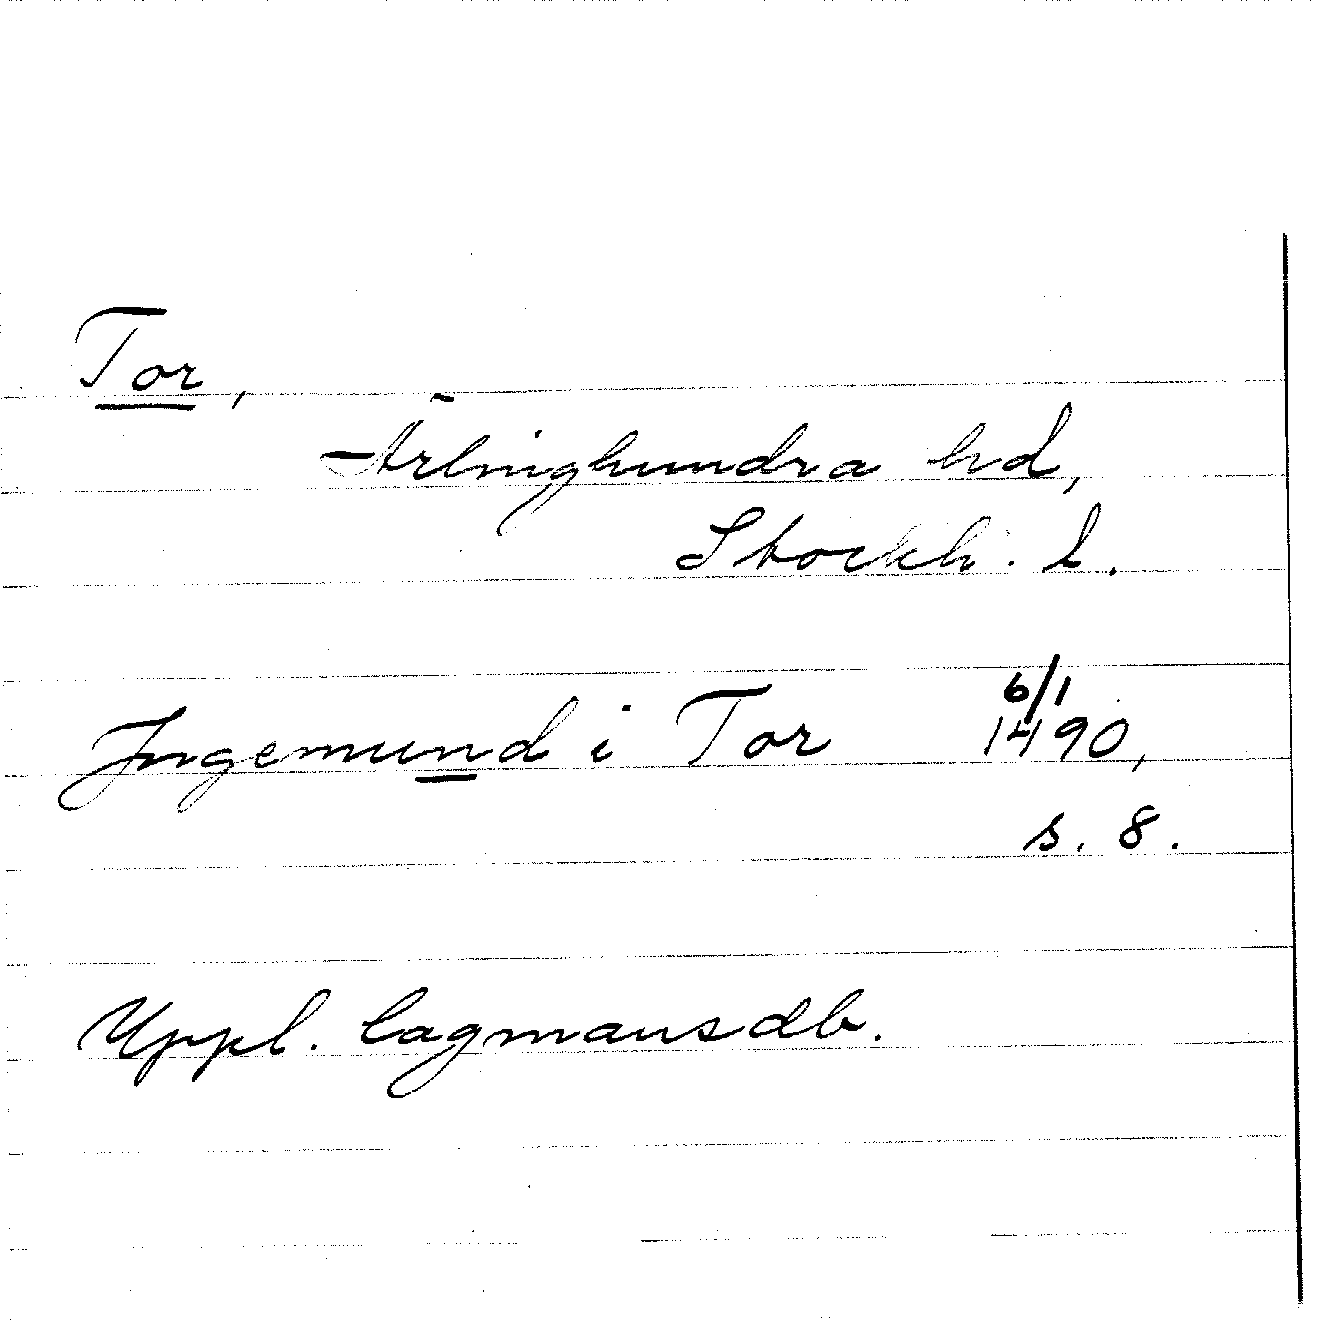 Tor,
Ärlinghundra hd,
Stockh. l.
6/1
Ingemund i Tor 1490,
s. 8.
Uppl. lagmansdb.